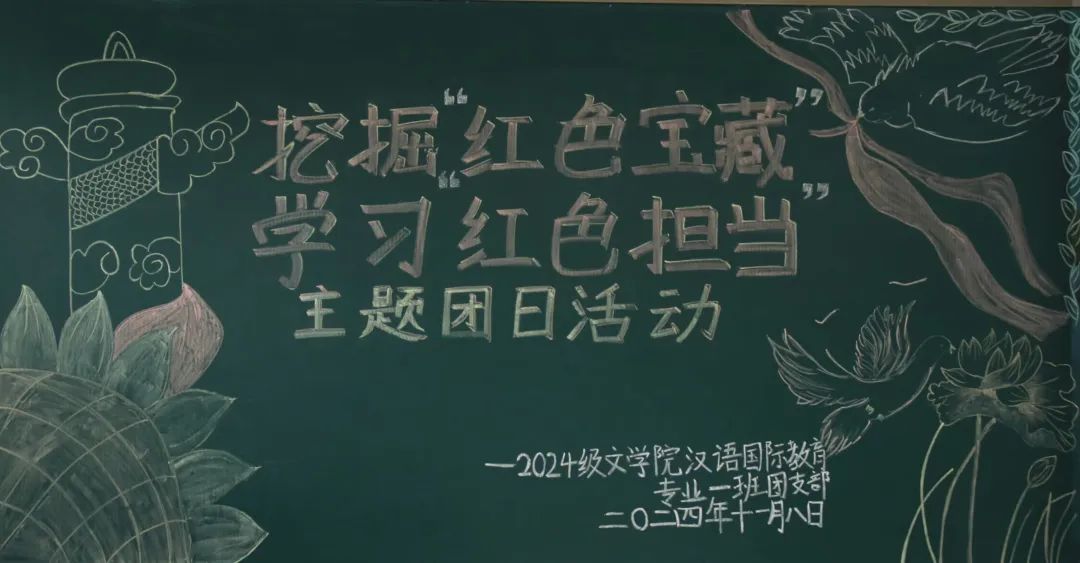 挖掘“红色宝藏”
学习“红色担当”
主题团日活动
—2024级文学院汉语国际教育
专业一班团支部
二〇二四年十一月八日